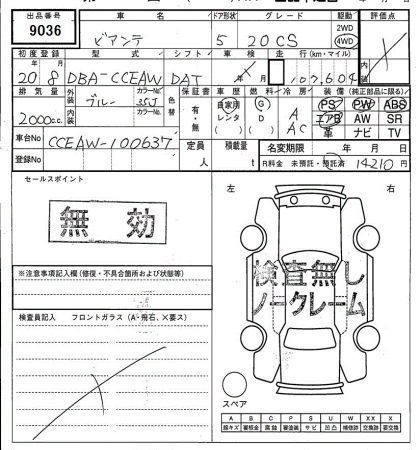 出品番号 車名 ドア形状 グレード 駆動 評価点
9036 ビアンテ 5 20CS 2WD 4WD
初度登録 型式 シフト 車検 走行(km・マイル)
20年8月 DBA-CCEAW DAT 107,604
排気量 外装 カラーNo. 色替 保証書 車歴 燃料 冷房 装備(純正部品に限る)
2000cc ブルー 35J 有・無 自家用 レンタ G D A AC PS PW ABS
内装 カラーNo. エアB AW SR
革 ナビ TV
車台No CCEAW-100637 定員 人 積載量 t 名変期限 年 月 日
登録No R料金 未預託・預託済 14210円
セールスポイント 左 右
無効
検査無し
ノークレーム
※注意事項記入欄(修復・不具合箇所および状態等)
検査員記入 フロントガラス(A・飛石、X要ス)
スペア
A B C P S U W X XX
線キズ 要板金 腐蝕 要塗装 サビ 凹凸 補修跡 要交換 交換跡